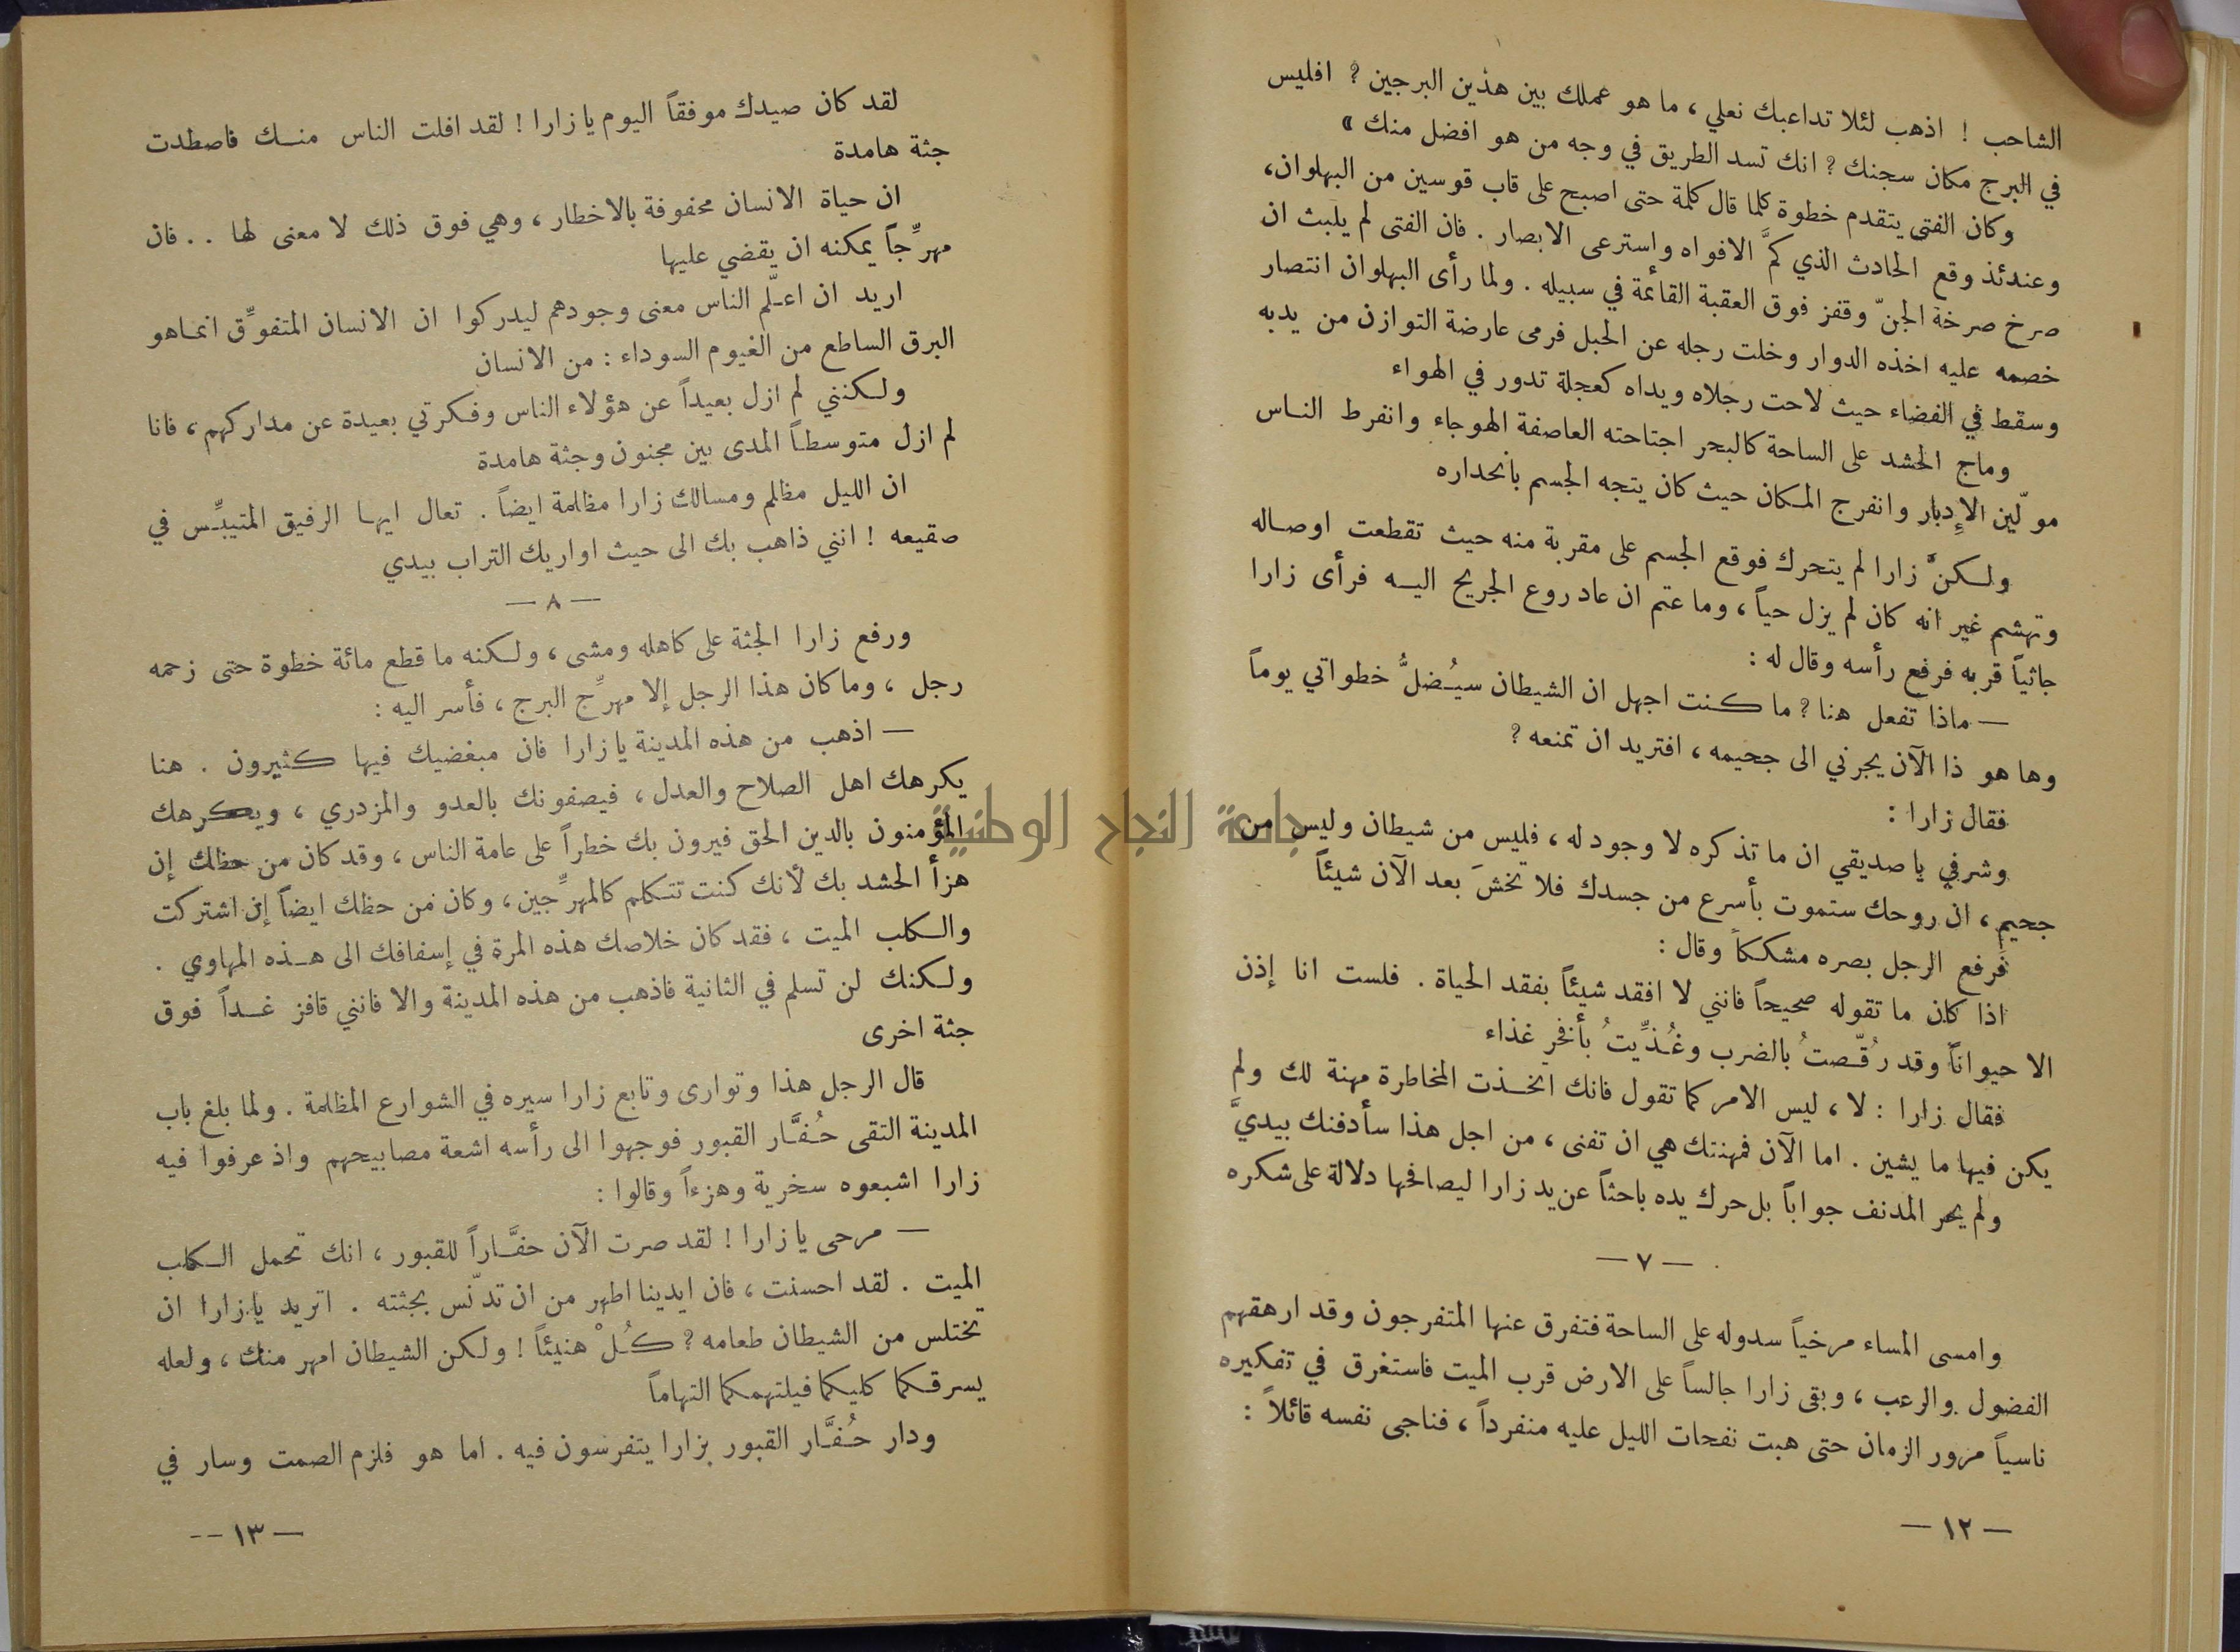 الشاحب ! اذهب لئلا تداعبك نعلي ، ما هو عملك بين هذين البرجين ؟ افليس
في البرج مكان سجنك ؟ انك تسد الطريق في وجه من هو افضل منك »
وكان الفتى يتقدم خطوة كلما قال كلمة حتى اصبح على قاب قوسين من البهلوان،
وعندئذ وقع الحادث الذي كمَّ الافواه واسترعى الابصار . فان الفتى لم يلبث ان
صرخ صرخة الجنّ وقفز فوق العقبة القائمة في سبيله . ولما رأى البهلوان انتصار
خصمه عليه اخذه الدوار وخلت رجله عن الحبل فرمى عارضة التوازن من يدبه
وسقط في الفضاء حيث لاحت رجلاه ويداه كعجلة تدور في الهواء
وماج الحشد على الساحة كالبحر اجتاحته العاصفة الهوجاء وانفرط الناس
مولّين الإِدبار وانفرج المكان حيث كان يتجه الجسم بانحداره
ولكنَّ زارا لم يتحرك فوقع الجسم على مقربة منه حيث تقطعت اوصاله
وتهشم غير انه كان لم يزل حياً ، وما عتم ان عاد روع الجريح اليه فرأى زارا
جاثياً قربه فرفع رأسه وقال له :
— ماذا تفعل هنا ؟ ما كنت اجهل ان الشيطان سيُضلُّ خطواتي يوماً
وها هو ذا الآن يجرني الى جحيمه ، افتريد ان تمنعه ؟
فقال زارا :
وشرفي يا صديقي ان ما تذكره لا وجود له ، فليس من شيطان وليس من
جحيم ، ان روحك ستموت بأسرع من جسدك فلا تخشَ بعد الآن شيئاً
فرفع الرجل بصره مشككاً وقال :
اذا كان ما تقوله صحيحاً فانني لا افقد شيئاً بفقد الحياة . فلست انا إذن
الا حيواناً وقد رُقّصتُ بالضرب وغُذّيتُ بأفخر غذاء
فقال زارا : لا ، ليس الامر كما تقول فانك اتخذت المخاطرة مهنة لك ولم
يكن فيها ما يشين . اما الآن فمهنتك هي ان تفنى ، من اجل هذا سأدفنك بيديَّ
ولم يحر المدنف جواباً بل حرك يده باحثاً عن يد زارا ليصافحها دلالة على شكره
— ٧ —
وامسى المساء مرخياً سدوله على الساحة فتفرق عنها المتفرجون وقد ارهقهم
الفضول والرعب ، وبقى زارا جالساً على الارض قرب الميت فاستغرق في تفكيره
ناسياً مرور الزمان حتى هبت نفحات الليل عليه منفرداً ، فناجى نفسه قائلاً :
— ١٢ —
لقد كان صيدك موفقاً اليوم يا زارا ! لقد افلت الناس منك فاصطدت
جثة هامدة
ان حياة الانسان محفوفة بالاخطار ، وهي فوق ذلك لا معنى لها . . فان
مهرِّجاً يمكنه ان يقضي عليها
اريد ان اعلّم الناس معنى وجودهم ليدركوا ان الانسان المتفوِّق انما هو
البرق الساطع من الغيوم السوداء : من الانسان
ولكنني لم ازل بعيداً عن هؤلاء الناس وفكرتي بعيدة عن مداركهم ، فانا
لم ازل متوسطاً المدى بين مجنون وجثة هامدة
ان الليل مظلم ومسالك زارا مظلمة ايضاً . تعال ايها الرفيق المتيبِّس في
صقيعه ! انني ذاهب بك الى حيث اواريك التراب بيدي
— ٨ —
ورفع زارا الجثة على كاهله ومشى ، ولكنه ما قطع مائة خطوة حتى زحمه
رجل ، وما كان هذا الرجل إلا مهرِّج البرج ، فأسر اليه :
— اذهب من هذه المدينة يا زارا فان مبغضيك فيها كثيرون . هنا
يكرهك اهل الصلاح والعدل ، فيصفونك بالعدو والمزدري ، ويكرهك
المؤمنون بالدين الحق فيرون بك خطراً على عامة الناس ، وقد كان من حظك إن
هزأ الحشد بك لأنك كنت تتكلم كالمهرِّجين ، وكان من حظك ايضاً إن اشتركت
والكلب الميت ، فقد كان خلاصك هذه المرة في إسفافك الى هذه المهاوي .
ولكنك لن تسلم في الثانية فاذهب من هذه المدينة والا فانني قافز غداً فوق
جثة اخرى
قال الرجل هذا وتوارى وتابع زارا سيره في الشوارع المظلمة . ولما بلغ باب
المدينة التقى حُفَّار القبور فوجهوا الى رأسه اشعة مصابيحهم واذ عرفوا فيه
زارا اشبعوه سخرية وهزءاً وقالوا :
— مرحى يا زارا ! لقد صرت الآن حفَّاراً للقبور ، انك تحمل الكلب
الميت . لقد احسنت ، فان ايدينا اطهر من ان تدنّس بجثته . اتريد يا زارا ان
تختلس من الشيطان طعامه ؟ كُلْ هنيئاً ! ولكن الشيطان امهر منك ، ولعله
يسرقكما كليكما فيلتهمكما التهاماً
ودار حُفَّار القبور بزارا يتفرسون فيه . اما هو فلزم الصمت وسار في
— ١٣ --
جامعة النجاح الوطنية